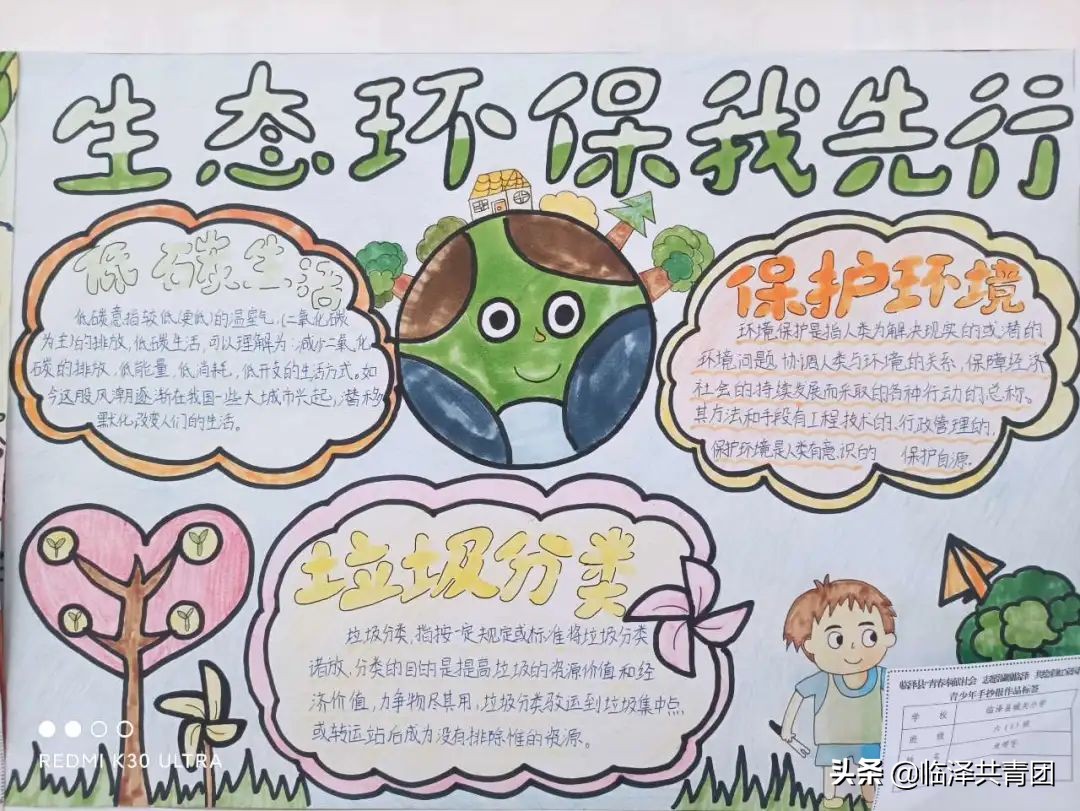 生态环保我先行
低碳生活
低碳意指较低(更低)的温室气,(二氧化碳
为主)的排放,低碳生活,可以理解为:减少二氧化
碳的排放,低能量,低消耗,低开支的生活方式。如
今这股风潮逐渐在我国一些大城市兴起,潜移
默化改变人们的生活。
保护环境
环境保护是指人类为解决现实的或潜的
环境问题,协调人类与环境的关系,保障经济
社会的持续发展而采取的各种行动的总称。
其方法和手段有工程技术的、行政管理的,
保护环境是人类有意识的 保护自源.
垃圾分类
垃圾分类,指按一定规定或标准将垃圾分类
诸放,分类的目的是提高垃圾的资源价值和经
济价值,力争物尽其用,垃圾分类驳运到垃圾集中点
或转运站后成为没有排除惟的资源。
临泽县"青春奉献社会
青少年手抄报作品标签
学校
临泽县城关小学
班级
REDMI K30 ULTRA
头条 @临泽共青团